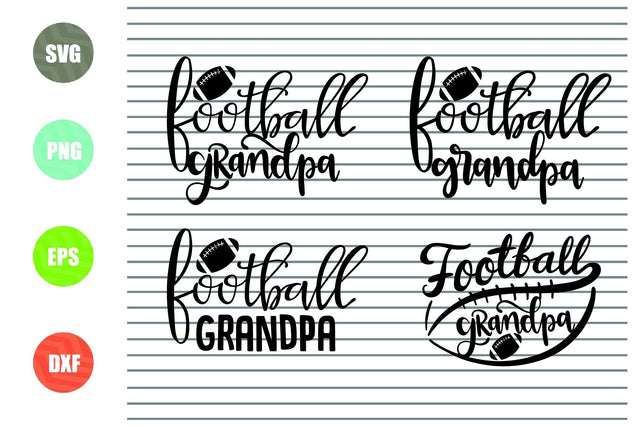 SVG
PNG
EPS
DXF
football
grandpa
football
grandpa
football
GRANDPA
Football
grandpa